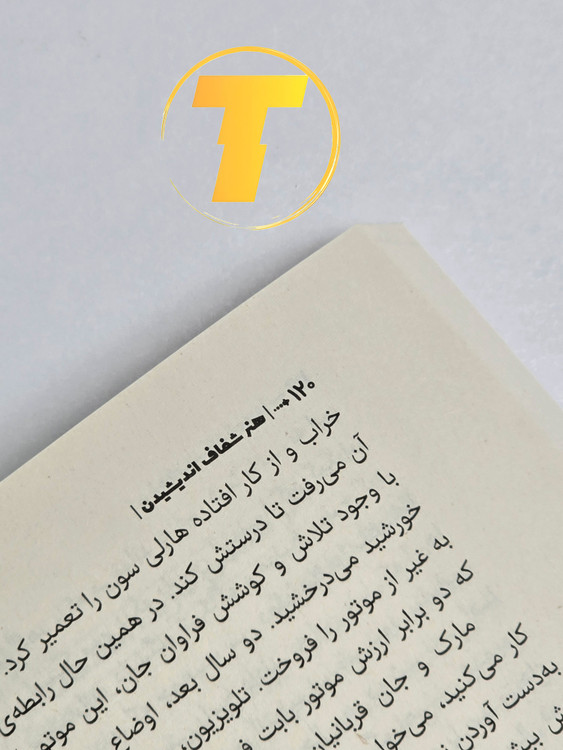 T
۱۲۰ ...• | هنر شفاف اندیشیدن |
خراب و از کار افتاده هارلی سون را تعمیر کرد.
آن می‌رفت تا درستش کند. در همین حال رابطه‌ی
با وجود تلاش و کوشش فراوان جان، این موتور
خورشید می‌درخشید. دو سال بعد، اوضاع
به غیر از موتور را فروخت. تلویزیون،
که دو برابر ارزش موتور بابت
مارک و جان قربانیان
کار می‌کنید، می‌خوا
به‌دست آوردن